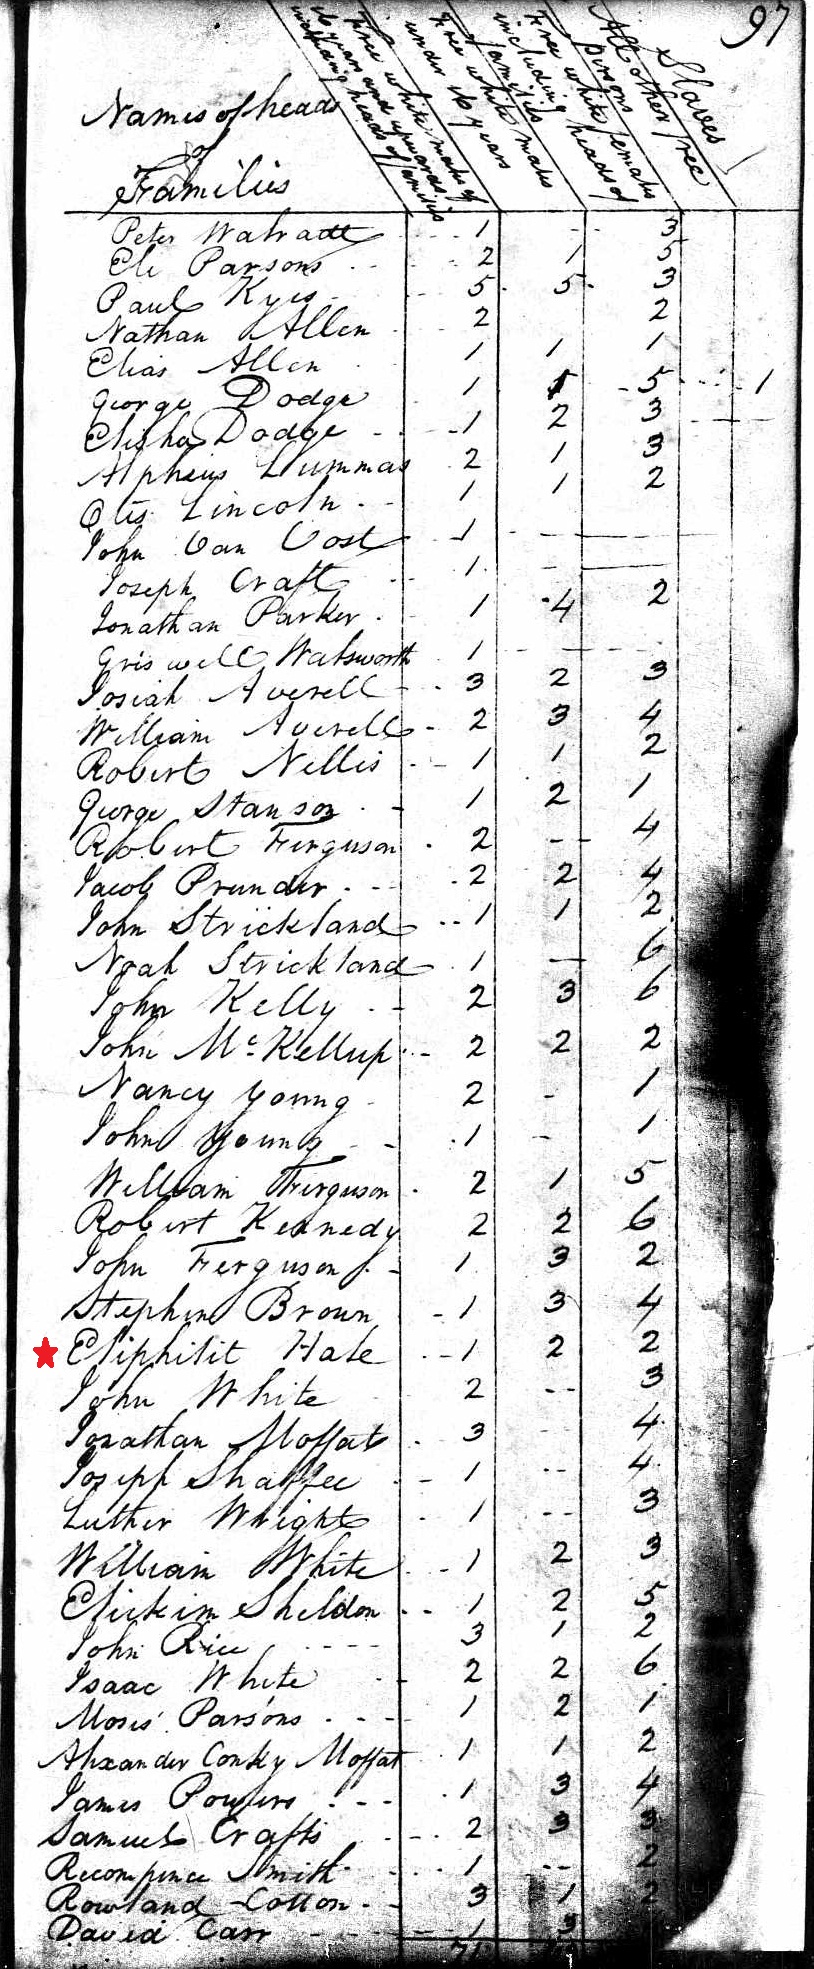 97
Names of heads
of
Families
Free white males of
16 years and upwards
including heads of
families
Free white males
under 16 years
Free white females
including heads of
families
All other free
persons
Slaves
Peter Walradt 1 - - 3
Eli Parsons 2 1 5
Paul Kyes 5 5 3
Nathan Allen 2 2
Elias Allen 1 1 1
George Dodge 1 5 5 1
Elisha Dodge 1 2 3
Alpheus Lummas 2 1 3
Otis Lincoln 1 1 2
John Van Vost 1
Joseph Craft 1
Jonathan Parker 1 4 2
Griswell Watsworth 1
Josiah Averell 3 2 3
William Averell 2 3 4
Robert Nellis 1 1 2
George Stanson 1 2 1
Robert Ferguson 2 - - 4
Jacob Prunder 2 2 4
John Strickland 1 1 2
Noah Strickland 1 — 6
John Kelly 2 3 6
John McKellup 2 2 2
Nancy Young 2 - 1
John Young 1 - 1
William Ferguson 2 1 5
Robert Kennedy 2 2 6
John Ferguson 1 3 2
Stephen Brown 1 3 4
Eliphilit Hale 1 2 2
John White 2 - - 3
Jonathan Moffat 3 - - 4
Joseph Shaffee 1 - - 4
Luther Wright 1 - - 3
William White 1 2 3
Elickim Sheldon 1 2 5
John Rice 3 1 2
Isaac White 2 2 6
Moses Parsons 1 2 1
Alexander Conky Moffat 1 1 2
James Powers 1 3 4
Samuel Crafts 2 3 3
Recompence Smith 1 - - 2
Rowland Cotton 3 1 2
David Carr 1 3
71